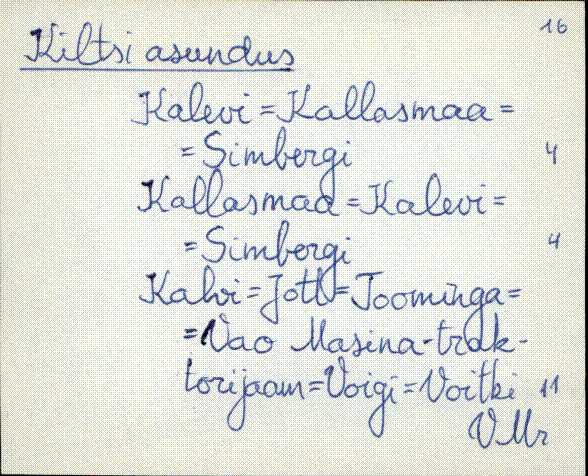 16
Kiltsi asundus
Kalevi = Kallasmaa =
= Simbergi 4
Kallasmaa = Kalevi =
= Simbergi 4
Kalvi = Jott = Toominga =
= Vao Masina-trak-
torijaam = Voigi = Voitki 11
VMr